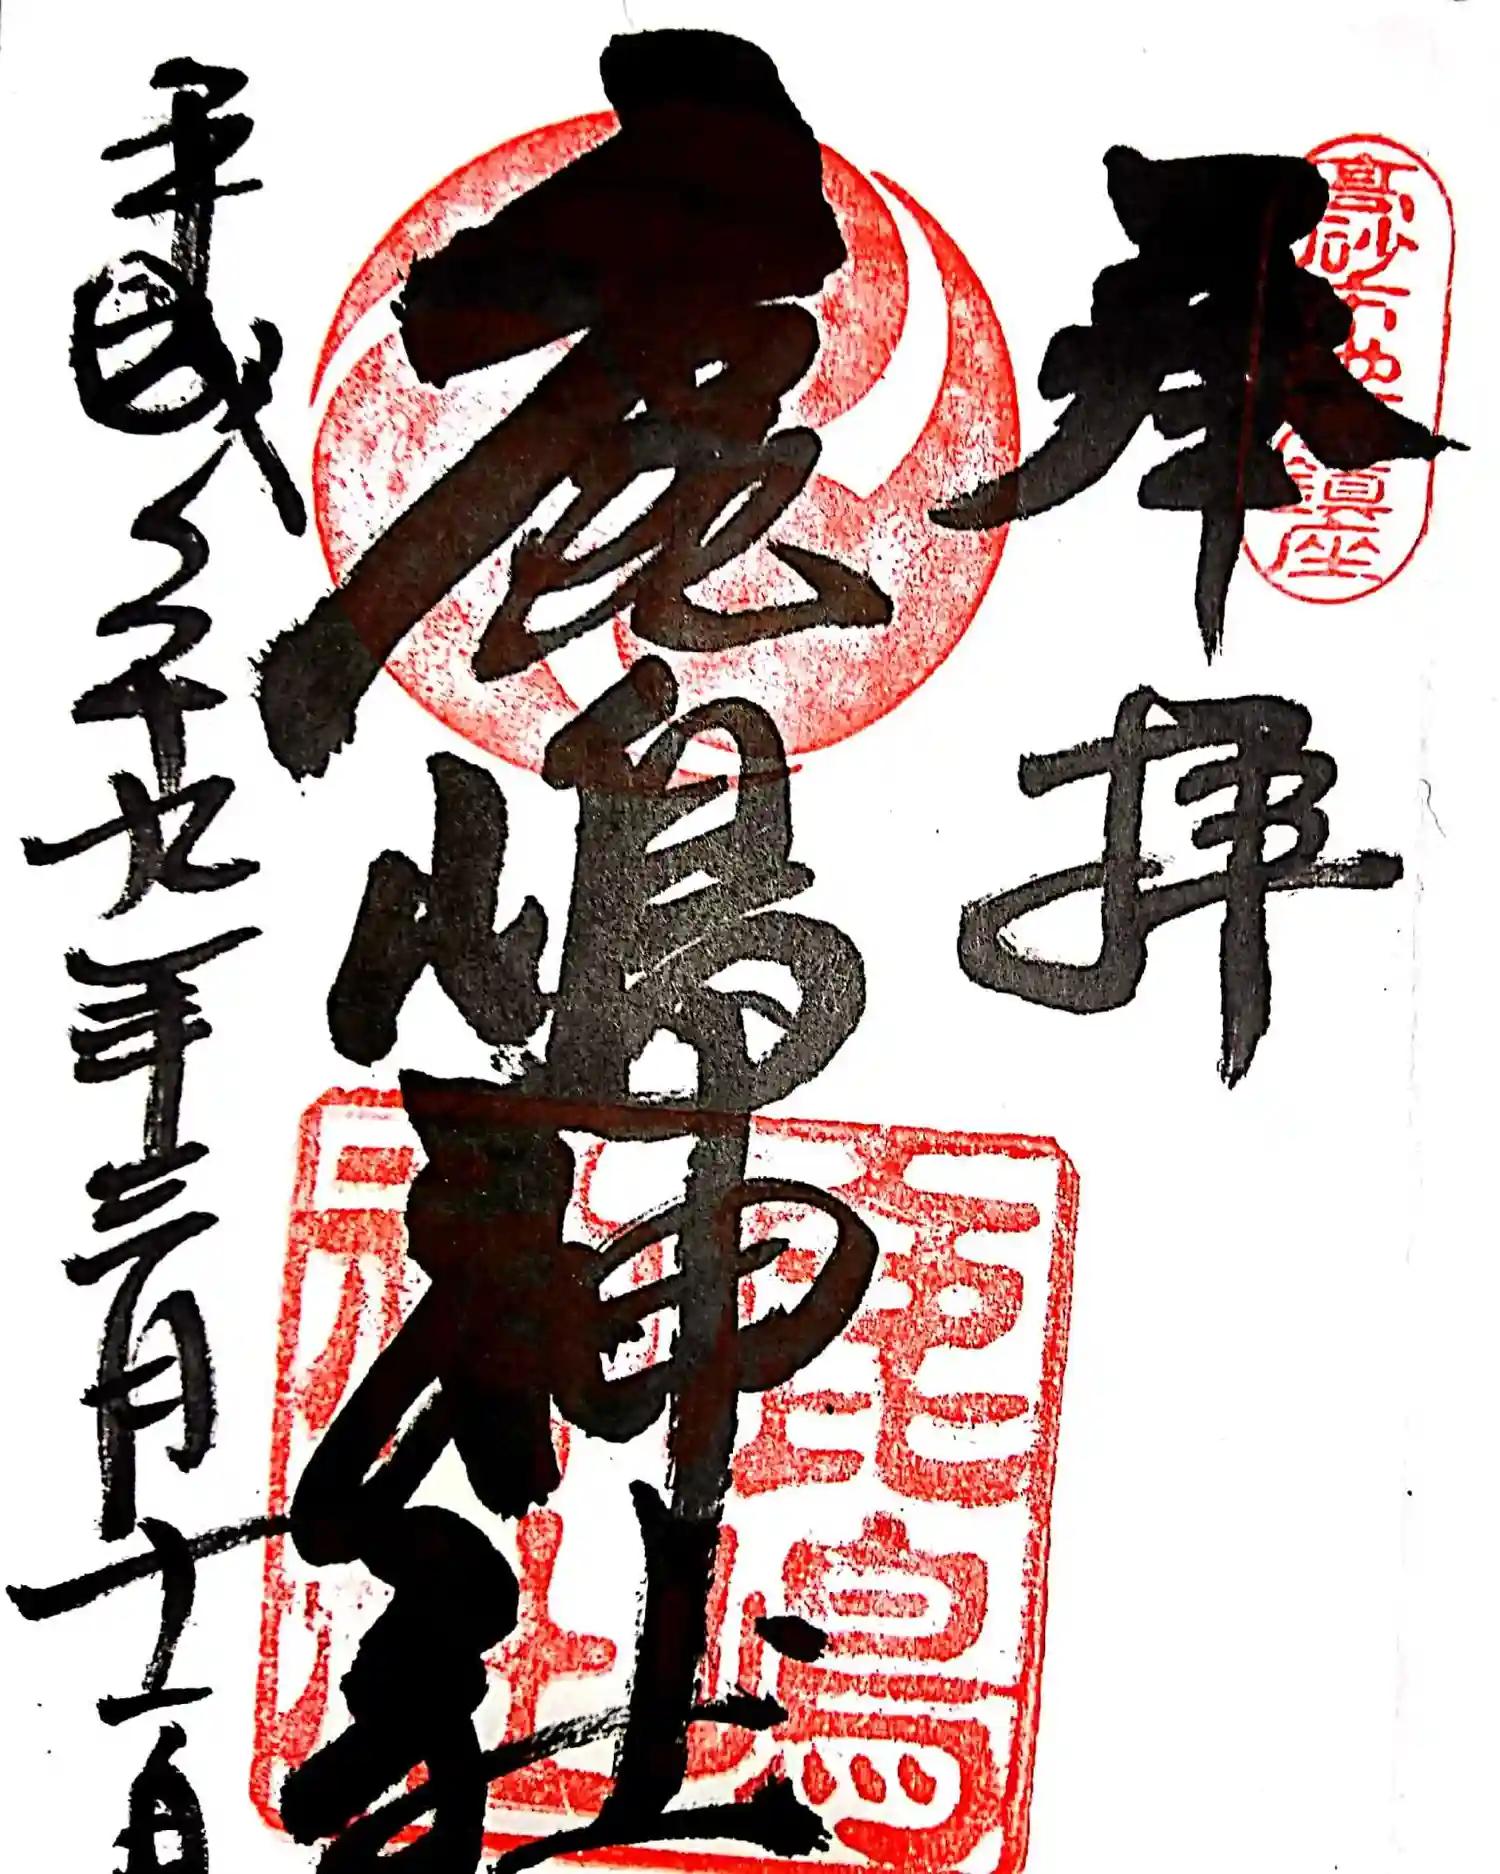 高砂市地鎮座
奉拝
鹿嶋神社
鹿嶋神社
平成二十九年三月十一日